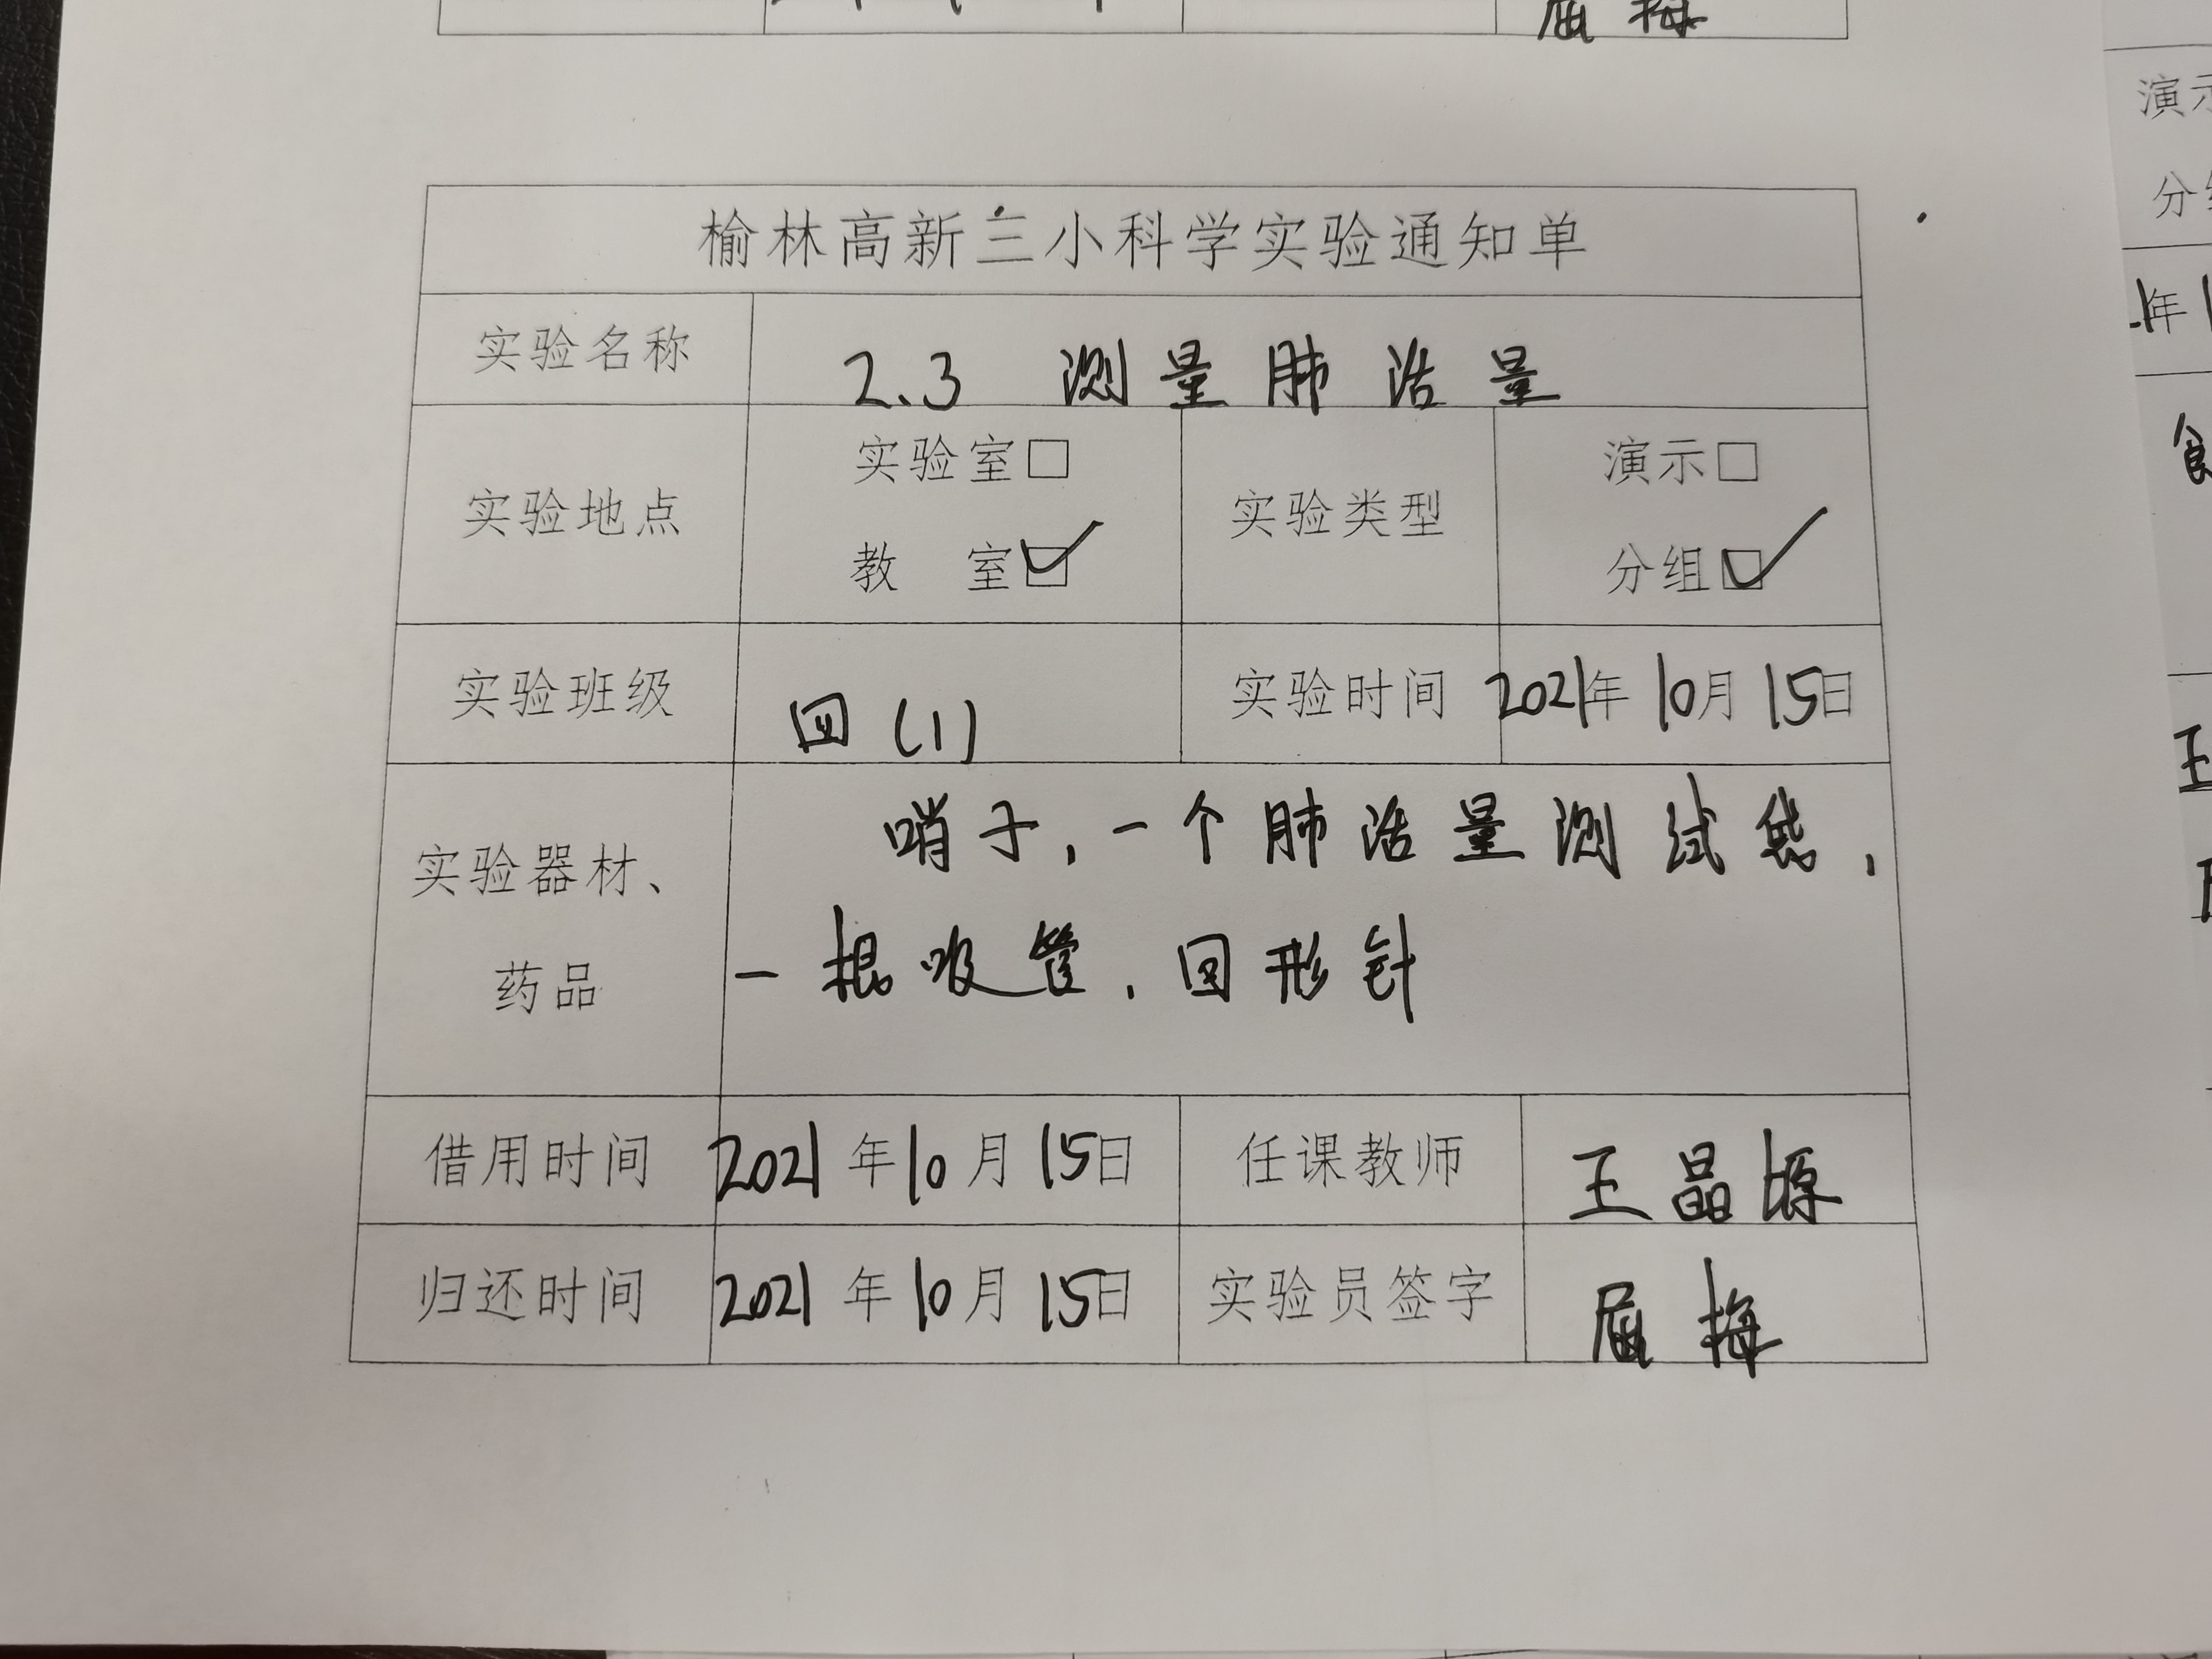 屈 梅
榆林高新三小科学实验通知单
实验名称 2.3 测量肺活量
实验地点 实验室□ 教 室☑ 实验类型 演示□ 分组☑
实验班级 四(1) 实验时间 2021年10月15日
实验器材、药品 哨子,一个肺活量测试袋,
一根吸管,回形针
借用时间 2021年10月15日 任课教师 王晶塬
归还时间 2021年10月15日 实验员签字 屈梅
演示
分组
年
食
王